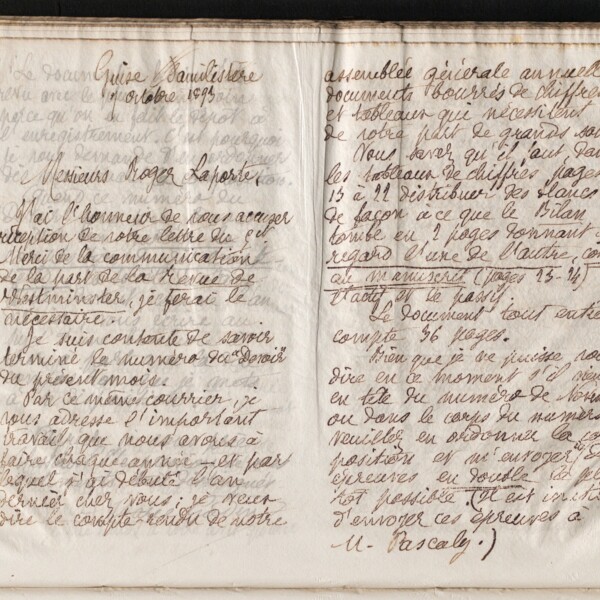 Guise Familistère
7 octobre 1893
Messieurs Roger Laporte,
J'ai l'honneur de vous accuser
réception de votre lettre du 5 ct
Merci de la communication
de la part de la Revue de
Westminster, je ferai le
nécessaire.
Je suis contente de savoir
terminé le numéro du Devoir
du présent mois.
Par ce même courrier, je
vous adresse l'important
travail que nous avons à
faire chaque année – et par
lequel j'ai débuté l'an
dernier chez vous ; je veux
dire le compte-rendu de notre
assemblée générale annuelle
documents bourrés de chiffres
et tableaux qui nécessitent
de votre part de grands soins
Vous savez qu'il faut, dans
les tableaux de chiffres, pages
13 à 22 distribuer des blancs
de façon à ce que le Bilan
tombe en 2 pages donnant
regard l'une de l'autre,
au manuscrit (pages 23-24)
l'actif et le passif.
Le document tout entier
compte 36 pages.
Bien que je ne puisse vous
dire en ce moment s'il
en tête du numéro de
ou dans le corps du numéro
veuillez en ordonner la
position et m'envoyer
épreuves en double le plus
tôt possible. (Il est
d'envoyer ces épreuves à
M. Pascaly.)